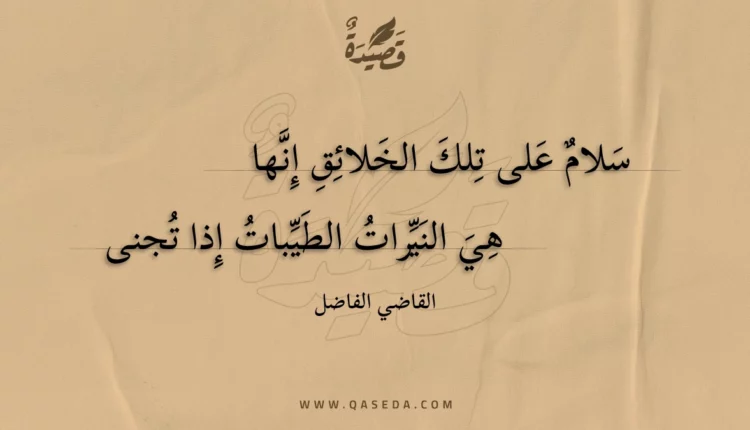 قَصِيْدَةٌ
سَلامٌ عَلى تِلكَ الخَلائِقِ إِنَّها
هِيَ النَيِّراتُ الطَيِّباتُ إِذا تُجنى
القاضي الفاضل
WWW.QASEDA.COM